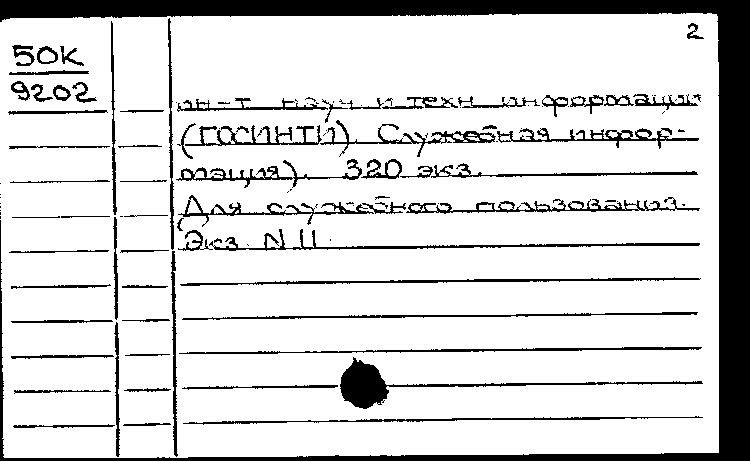 2
50К
9202
ин-т науч и техн информации
(ГОСИНТИ). Служебная инфор-
мация). 320 экз.
Для служебного пользования.
Экз. N 11.